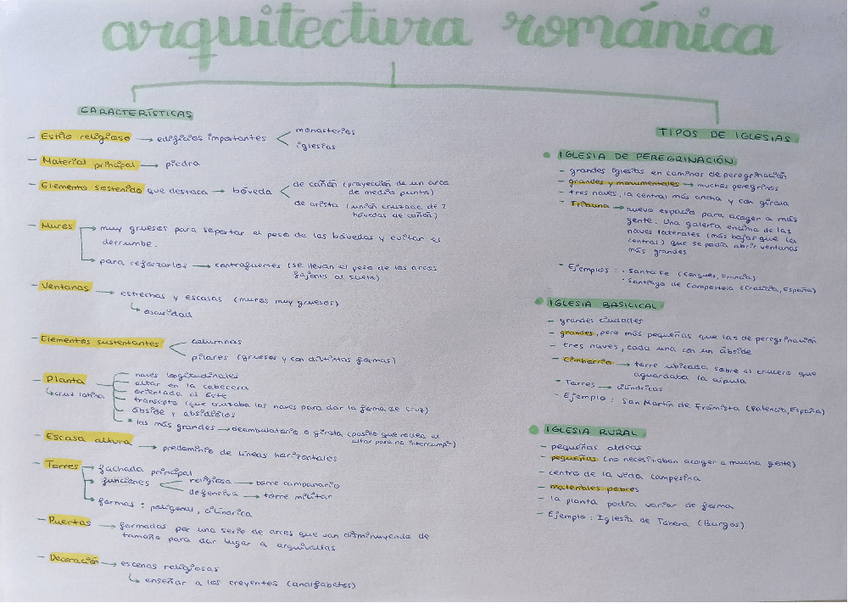 arquitectura románica
CARACTERÍSTICAS
- Estilo religioso → edificios importantes < monasterios
iglesias
- Material principal → piedra
- Elemento sostenido que destaca → bóveda < de cañón (proyección de un arco
de medio punto)
de arista (unión cruzada de 2
bóvedas de cañón)
- Muros → muy gruesos para soportar el peso de las bóvedas y evitar el
derrumbe.
para reforzarlos → contrafuertes (se llevan el peso de los arcos
fajones al suelo)
- Ventanas → estrechas y escasas (muros muy gruesos)
↳ oscuridad
- Elementos sustentantes < columnas
pilares (gruesos y con distintas formas)
- Planta
↳ cruz latina
naves longitudinales
altar en la cabecera
orientada al Este
transepto (que cruzaba las naves para dar la forma de cruz)
ábside y absidiolos
* las más grandes → deambulatorio o girola (pasillo que rodea el
altar para no interrumpir)
- Escasa altura → predominio de líneas horizontales
- Torres → fachada principal
→ funciones < religiosa → torre campanario
defensiva → torre militar
→ formas: polígonal, cilíndrica
- Puertas → formadas por una serie de arcos que van disminuyendo de
tamaño para dar lugar a arquivoltas
- Decoración → escenas religiosas
↳ enseñar a los creyentes (analfabetos)
TIPOS DE IGLESIAS
• IGLESIA DE PEREGRINACIÓN
- grandes iglesias en caminos de peregrinación
- grandes y monumentales → muchos peregrinos
- tres naves, la central más ancha y con girola
- Tribuna → nuevo espacio para acoger a más
gente. Una galería encima de las
naves laterales (más bajas que la
central) que se podía abrir ventanas
más grandes
- Ejemplos: · Santa Fe (Conques, Francia)
· Santiago de Compostela (Galicia, España)
• IGLESIA BASILICAL
- grandes ciudades
- grandes, pero más pequeñas que las de peregrinación
- tres naves, cada una con un ábside
- Cimborrio → torre ubicada sobre el crucero que
aguardaba la cúpula
- Torres → cilíndricas
- Ejemplo: San Martín de Frómista (Palencia, España)
• IGLESIA RURAL
- pequeñas aldeas
- pequeñas (no necesitaban acoger a mucha gente)
- centro de la vida campesina
- materiales pobres
- la planta podía variar de forma
- Ejemplo: Iglesia de Tovera (Burgos)